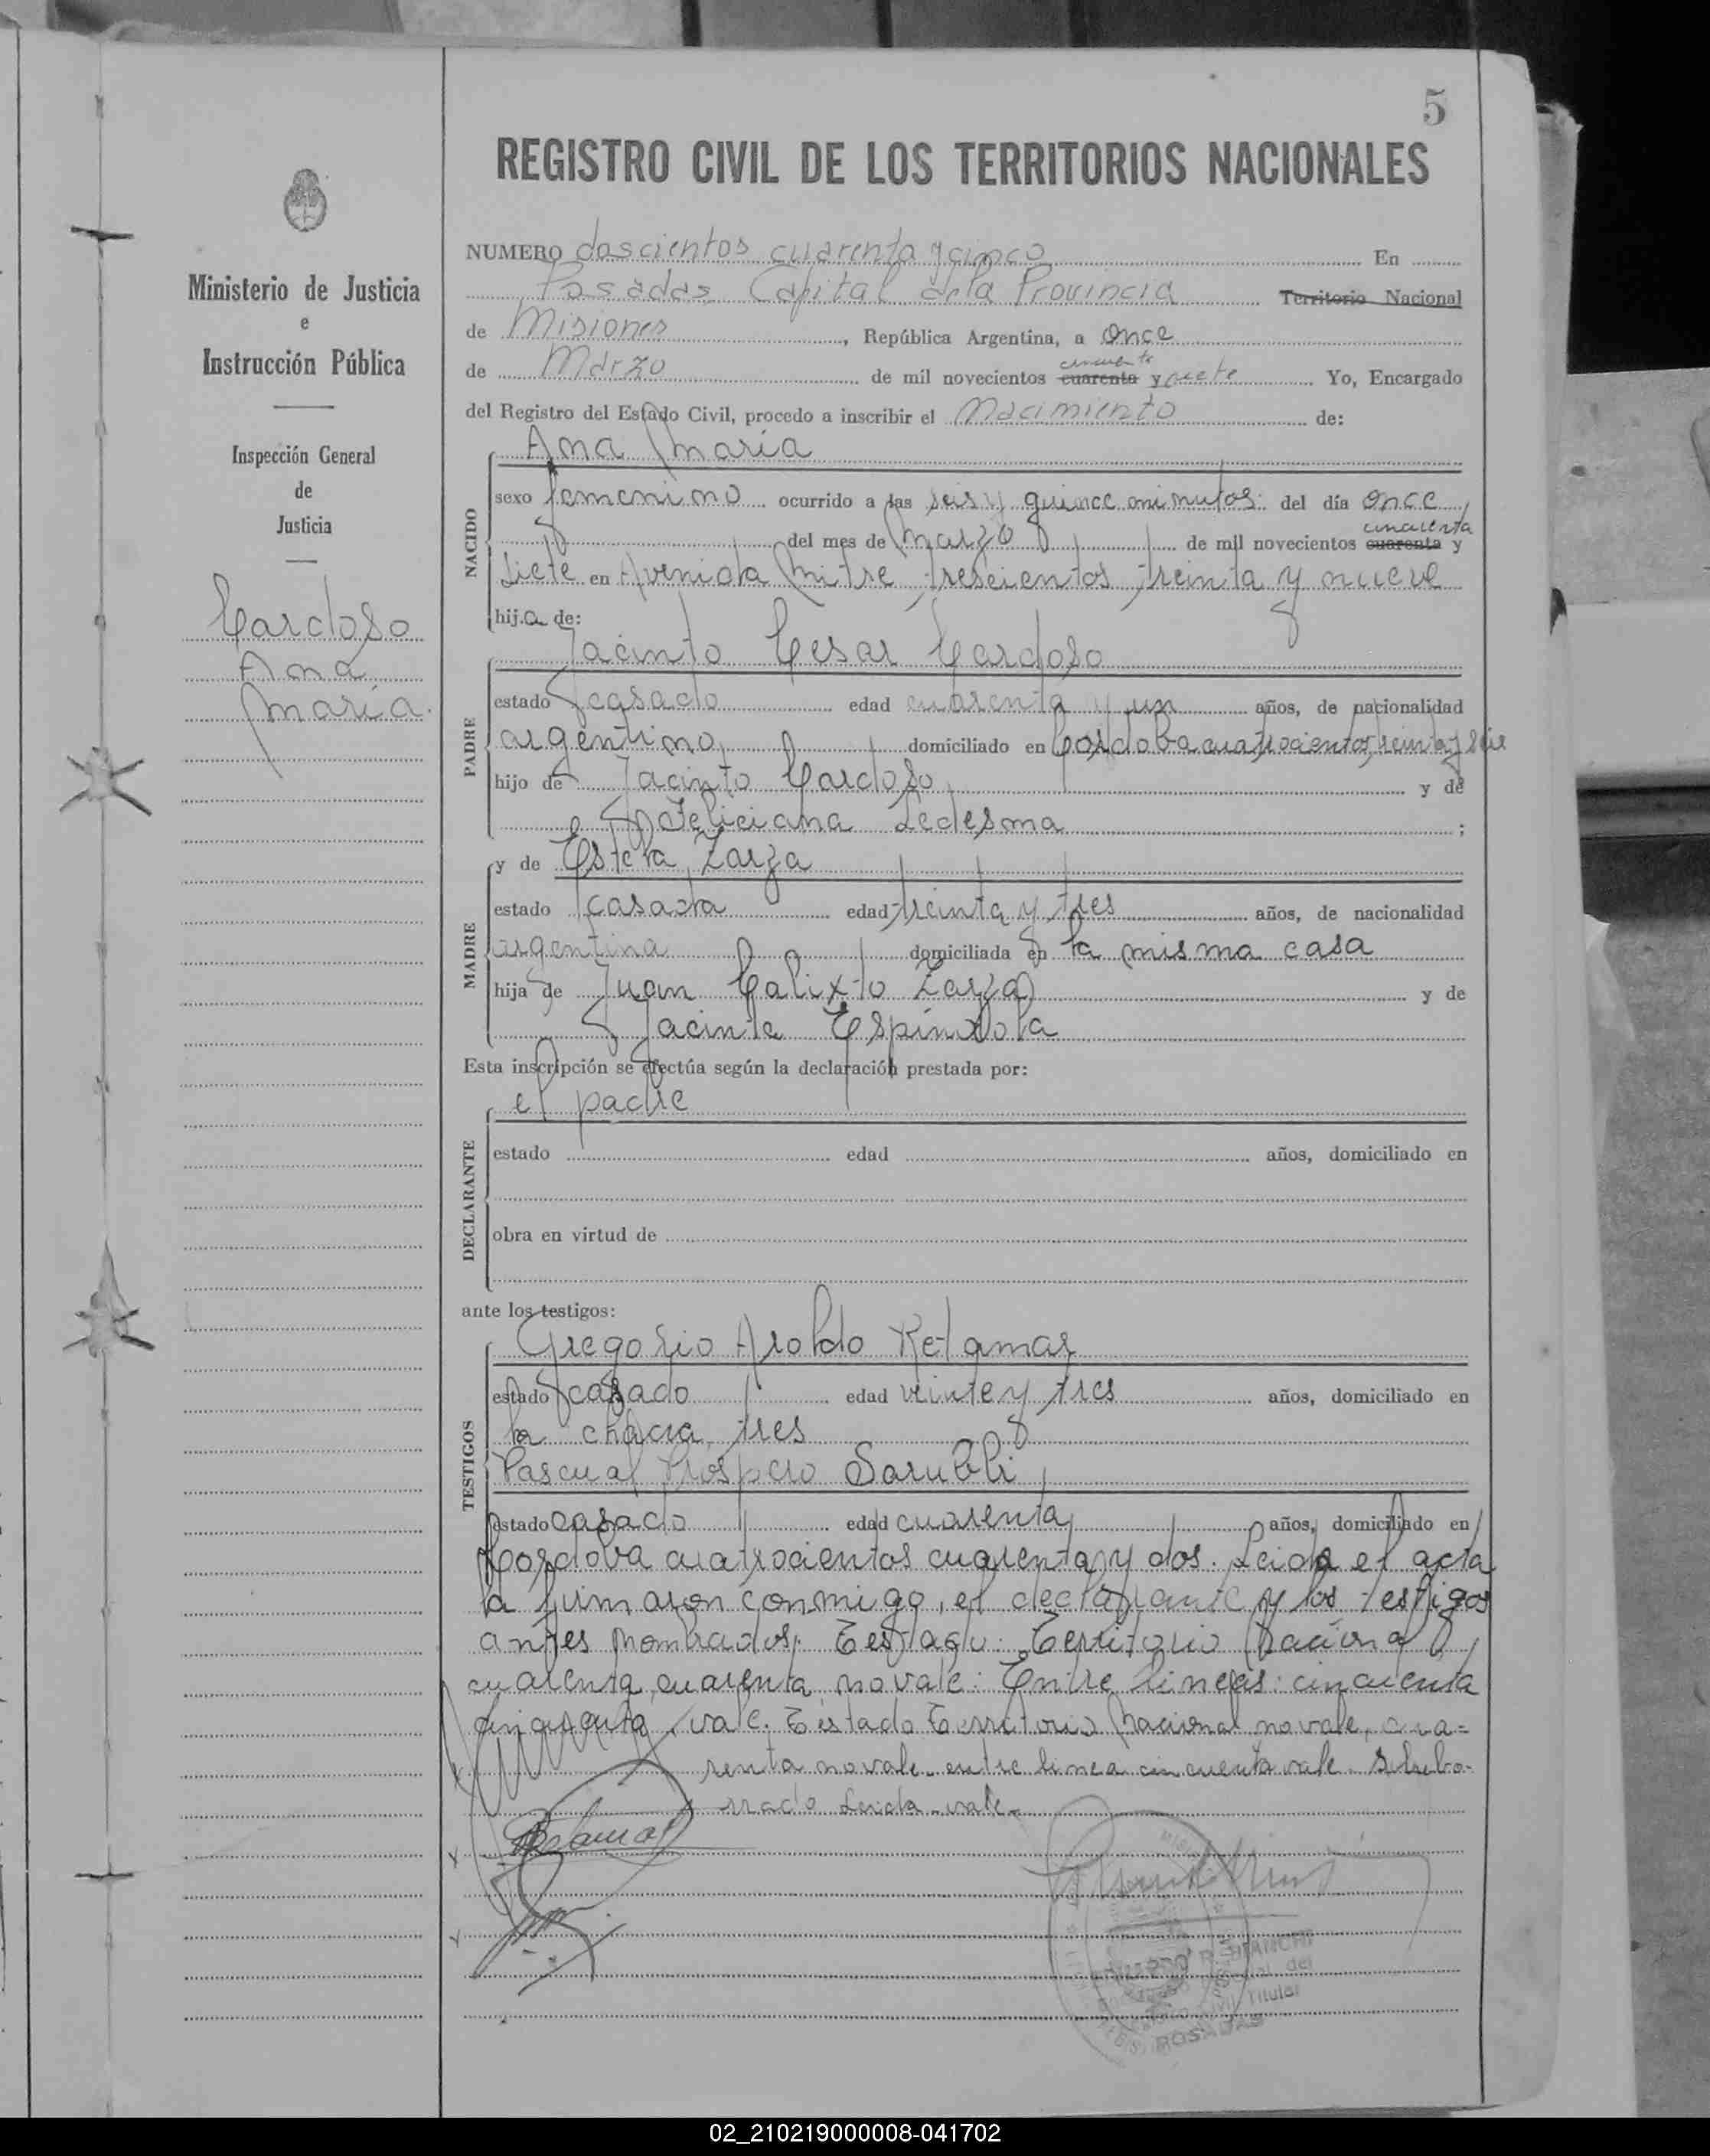 5
REGISTRO CIVIL DE LOS TERRITORIOS NACIONALES
Ministerio de Justicia
e
Instrucción Pública
Inspección General
de
Justicia
Cardoso
Ana
María.
NUMERO doscientos cuarenta y cinco En
Posadas Capital de la Provincia Territorio Nacional
de Misiones, República Argentina, a once
cincuenta
de Marzo de mil novecientos cuarenta y siete Yo, Encargado
del Registro del Estado Civil, procedo a inscribir el Nacimiento de:
NACIDO
Ana María
sexo femenino ocurrido a las seis y quince minutos del día once
cincuenta
del mes de Marzo de mil novecientos cuarenta y
siete en Avenida Mitre trescientos treinta y nueve
hija de:
PADRE
Jacinto Cesar Cardoso
estado casado edad cuarenta y un años, de nacionalidad
argentino domiciliado en Cordoba cuatrocientos treinta y seis
hijo de Jacinto Cardoso y de
Feliciana Ledesma ;
MADRE
y de Estela Zarza
estado casada edad treinta y tres años, de nacionalidad
argentina domiciliada en la misma casa
hija de Juan Calixto Zarza y de
Jacinta Espindola
Esta inscripción se efectúa según la declaración prestada por:
DECLARANTE
el padre
estado edad años, domiciliado en
obra en virtud de
ante los testigos:
TESTIGOS
Gregorio Aroldo Retamar
estado casado edad veinte y tres años, domiciliado en
la chacra tres
Pascual Prospero Sarubbi
estado casado edad cuarenta años, domiciliado en
Cordova cuatrocientos cuarenta y dos. Leida el acta
la firmaron conmigo, el declarante y los testigos
antes nombrados. Testado: Territorio Nacional
cuarenta, cuarenta, no vale: Entre lineas: cincuenta
cincuenta, vale. Testado Territorio Nacional no vale, cua=
renta no vale. entre linea cincuenta vale. Sobrebo-
rrado Leida-vale-
Retamar
BIANCHI
Titular
POSADAS
02_210219000008-041702